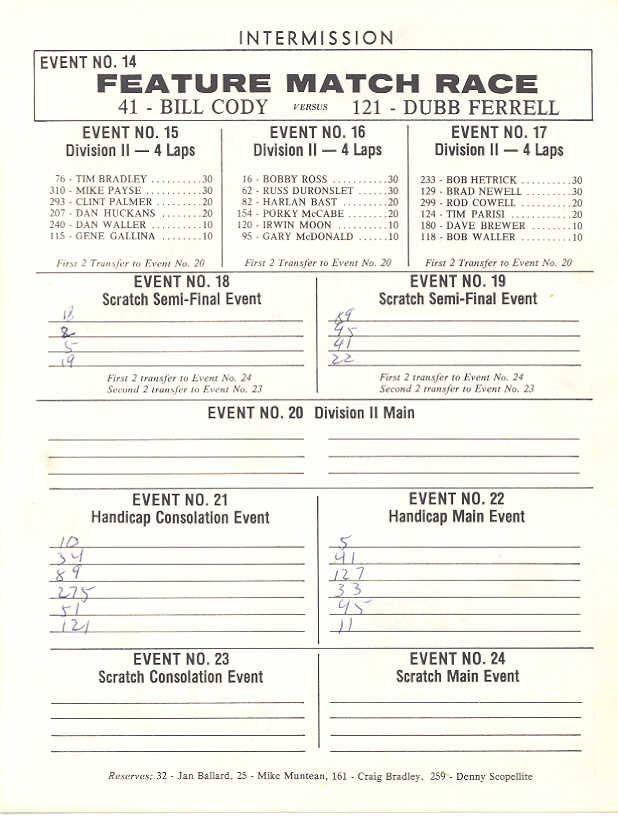 INTERMISSION
EVENT NO. 14
FEATURE MATCH RACE
41 - BILL CODY VERSUS 121 - DUBB FERRELL
EVENT NO. 15
Division II — 4 Laps
76 - TIM BRADLEY ..........30
310 - MIKE PAYSE ..........30
293 - CLINT PALMER ..........20
207 - DAN HUCKANS ..........20
240 - DAN WALLER ..........10
115 - GENE GALLINA ..........10
First 2 Transfer to Event No. 20
EVENT NO. 16
Division II — 4 Laps
16 - BOBBY ROSS ..........30
62 - RUSS DURONSLET ..........30
82 - HARLAN BAST ..........20
154 - PORKY McCABE ..........20
120 - IRWIN MOON ..........10
95 - GARY McDONALD ......10
First 2 Transfer to Event No. 20
EVENT NO. 17
Division II — 4 Laps
233 - BOB HETRICK ..........30
129 - BRAD NEWELL ..........30
299 - ROD COWELL ..........20
124 - TIM PARISI ..........20
180 - DAVE BREWER ..........10
118 - BOB WALLER ..........10
First 2 Transfer to Event No. 20
EVENT NO. 18
Scratch Semi-Final Event
18
2
5
19
First 2 transfer to Event No. 24
Second 2 transfer to Event No. 23
EVENT NO. 19
Scratch Semi-Final Event
89
95
41
22
First 2 transfer to Event No. 24
Second 2 transfer to Event No. 23
EVENT NO. 20 Division II Main
EVENT NO. 21
Handicap Consolation Event
10
34
89
275
51
121
EVENT NO. 22
Handicap Main Event
5
41
127
33
95
11
EVENT NO. 23
Scratch Consolation Event
EVENT NO. 24
Scratch Main Event
Reserves: 32 - Jan Ballard, 25 - Mike Muntean, 161 - Craig Bradley, 259 - Denny Scopellite